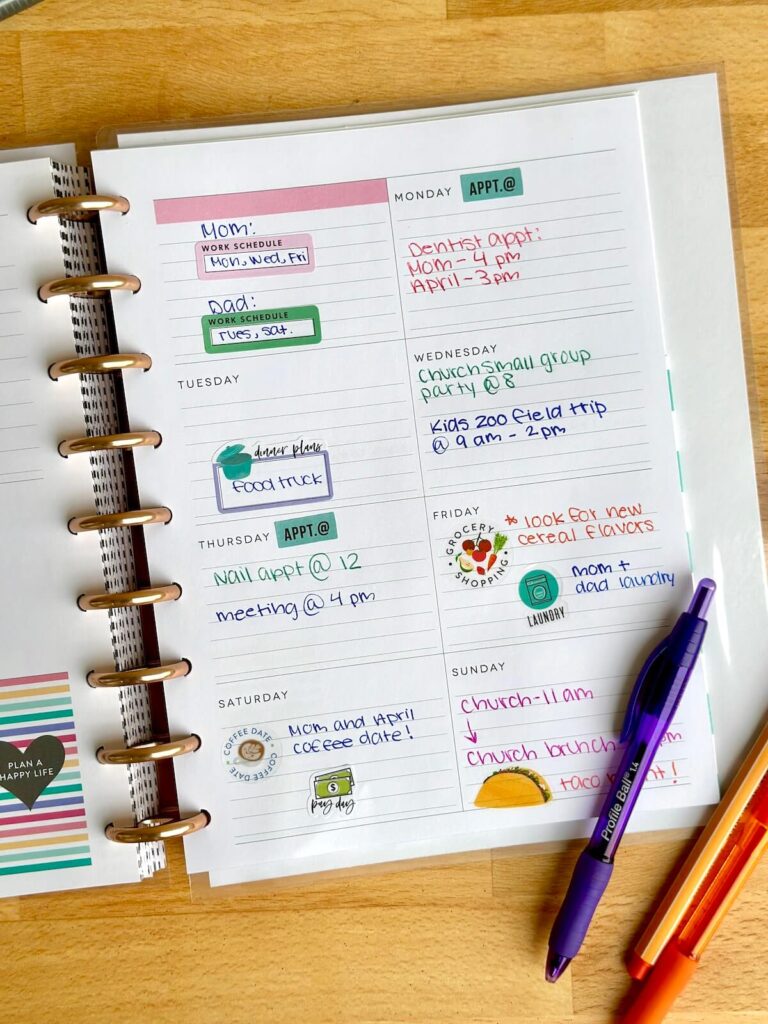 Mom:
WORK SCHEDULE
Mon, Wed, Fri
Dad:
WORK SCHEDULE
Tues, Sat.
MONDAY APPT.@
Dentist appt:
Mom - 4 pm
April - 3pm
TUESDAY
dinner plans
Food truck
WEDNESDAY
Church small group
party @ 8
Kids zoo field trip
@ 9 am - 2pm
THURSDAY APPT.@
Nail appt @ 12
meeting @ 4 pm
FRIDAY
GROCERY
SHOPPING
* look for new
cereal flavors
LAUNDRY
mom +
dad laundry
SATURDAY
COFFEE DATE
COFFEE DATE
Mom and April
coffee date!
$
pay day
SUNDAY
Church - 11 am
Church brunch
taco
PLAN A
HAPPY LIFE
Profile Ball 1.4